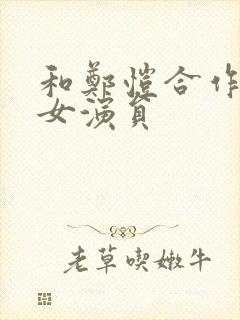 和鄭愷合作
女演員
老草喫嫩牛